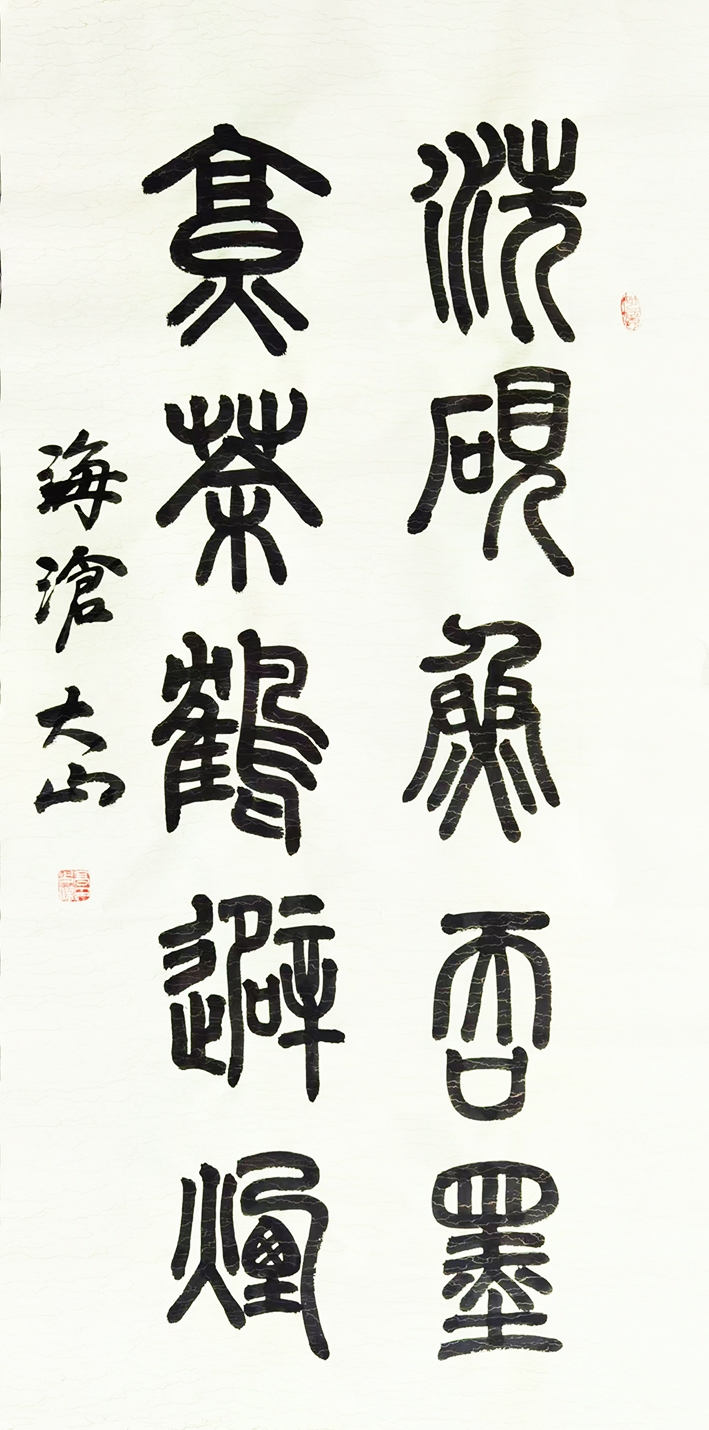 洗硯魚吞墨
烹茶鶴避煙
海滄大山